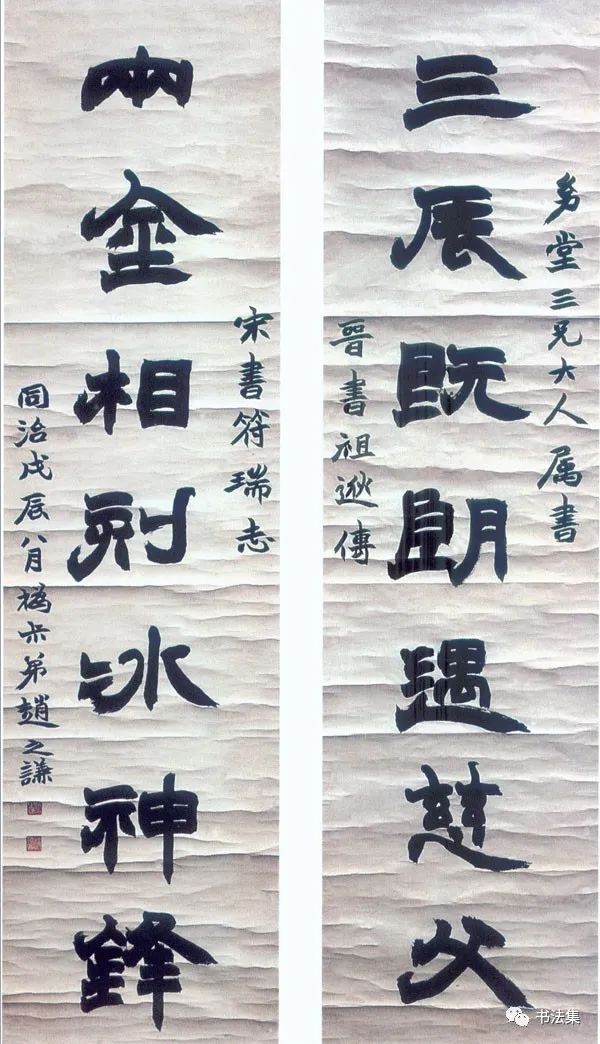 堂三兄大人属書
三辰既朗遇慈父
晉書祖逖傳
宋書符瑞志
兩金相刻冰神鋒
同治戊辰八月撝尗弟趙之謙
书法集